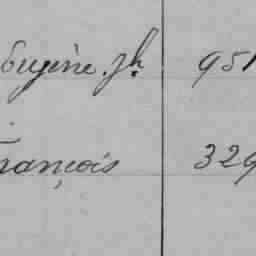 Eugène Jh. 951
François 329